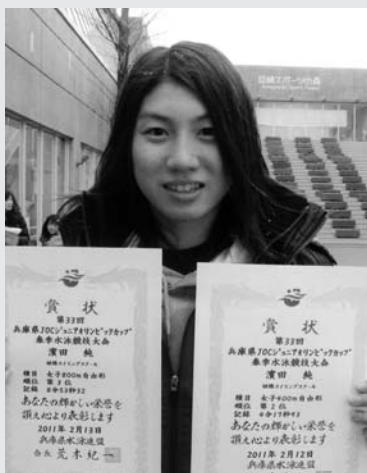 尼崎スポーツの森
賞状
第33回
兵庫県JOCジュニアオリンピックカップ
春季水泳競技大会
濱田 純
種目 女子800m自由形
順位 第3位
記録 8分53秒32
あなたの輝かしい栄誉を
讃え心より表彰します
2011年2月13日
兵庫県水泳連盟
会長 荒木紀一
賞状
第33回
兵庫県JOCジュニアオリンピックカップ
春季水泳競技大会
濱田 純
種目 女子400m自由形
順位 第2位
記録 4分17秒93
あなたの輝かしい栄誉を
讃え心より表彰します
2011年2月12日
兵庫県水泳連盟